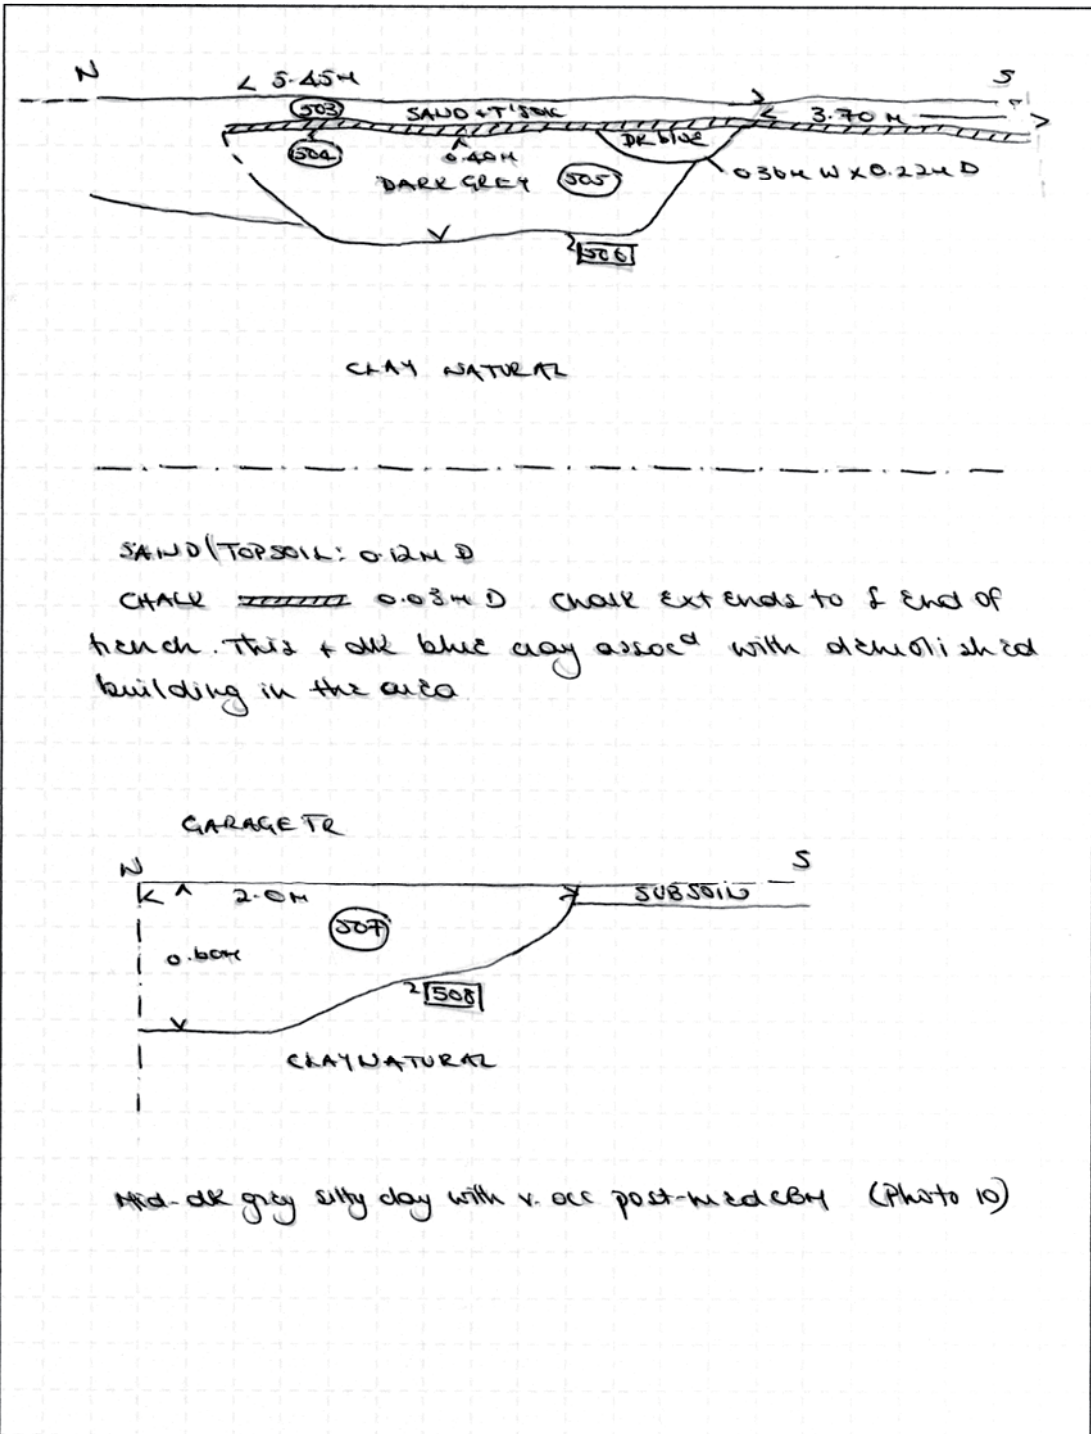 N S
< 5.45M
503 SAND + T'SOIL < 3.70 M >
504 0.40M DK blue
DARK GREY 505 0.36M W x 0.22M D
506
CLAY NATURAL
SAND/TOPSOIL: 0.12M D
CHALK 0.03M D Chalk Extends to S End of
trench. This + dk blue clay assocd with demolished
building in the area.
GARAGE TR
N S
2.0M SUBSOIL
507
0.60M
508
CLAY NATURAL
Mid-dk grey silty clay with v. occ post-med CBM (Photo 10)